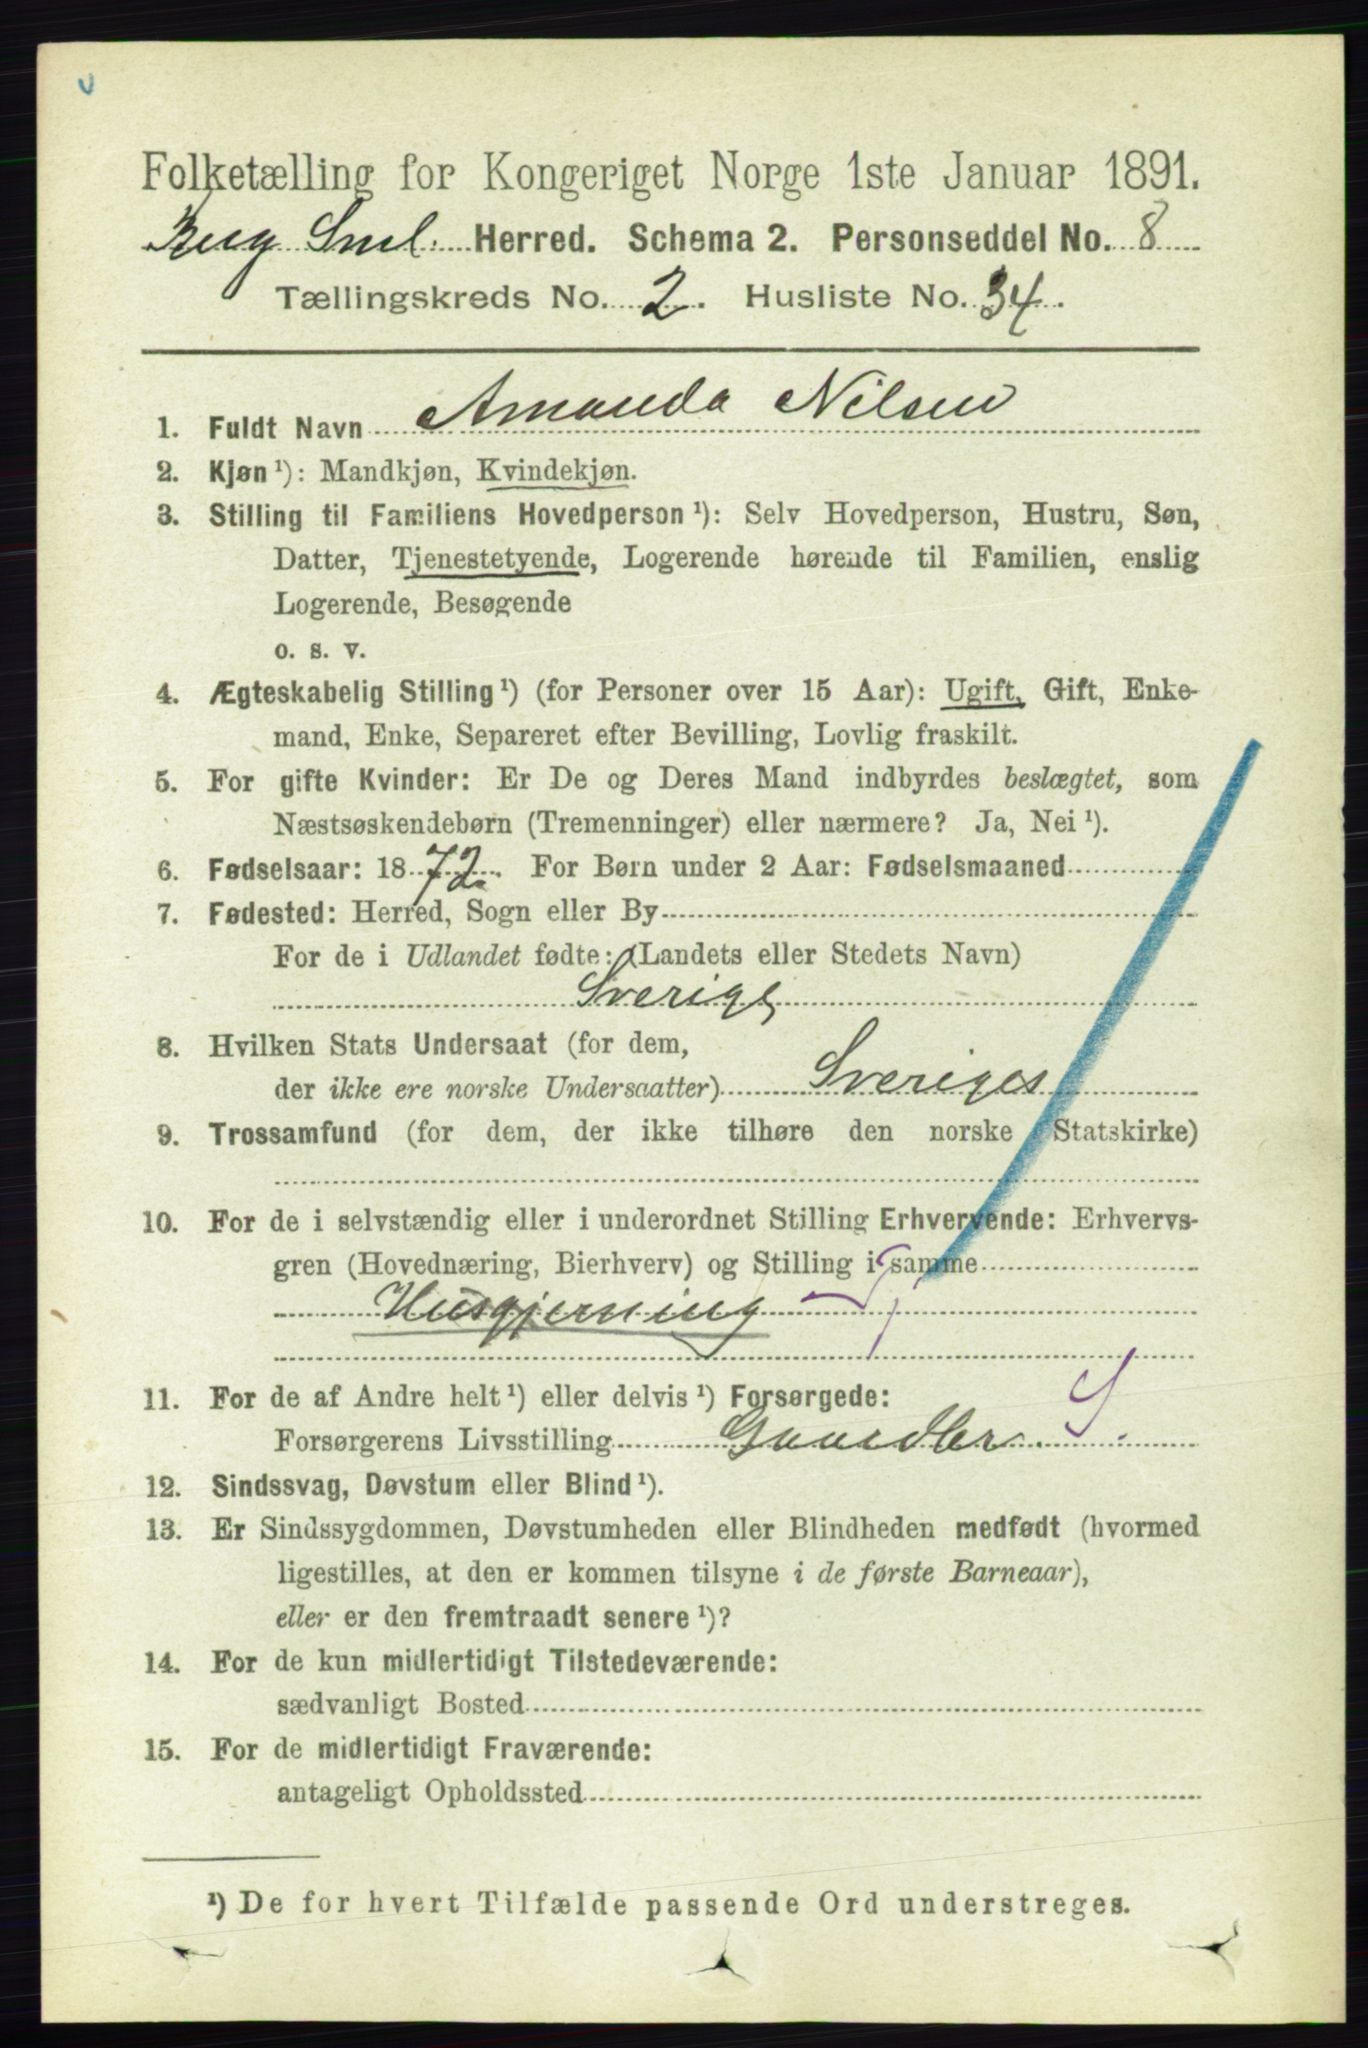 Folketælling for Kongeriget Norge 1ste Januar 1891.
Berg Sml. Herred. Schema 2. Personseddel No. 8
Tællingskreds No. 2. Husliste No. 34.
1. Fuldt Navn Amanda Nilsen
2. Kjøn ¹): Mandkjøn, Kvindekjøn.
3. Stilling til Familiens Hovedperson ¹): Selv Hovedperson, Hustru, Søn,
Datter, Tjenestetyende, Logerende hørende til Familien, enslig
Logerende, Besøgende
o. s. v.
4. Ægteskabelig Stilling ¹) (for Personer over 15 Aar): Ugift, Gift, Enke-
mand, Enke, Separeret efter Bevilling, Lovlig fraskilt.
5. For gifte Kvinder: Er De og Deres Mand indbyrdes beslægtet, som
Næstsøskendebørn (Tremenninger) eller nærmere? Ja, Nei ¹).
6. Fødselsaar: 1872. For Børn under 2 Aar: Fødselsmaaned
7. Fødested: Herred, Sogn eller By
For de i Udlandet fødte: (Landets eller Stedets Navn)
Sverige
8. Hvilken Stats Undersaat (for dem,
der ikke ere norske Undersaatter) Sveriges
9. Trossamfund (for dem, der ikke tilhøre den norske Statskirke)
10. For de i selvstændig eller i underordnet Stilling Erhvervende: Erhvervs-
gren (Hovednæring, Bierhverv) og Stilling i samme
Husgjerning
11. For de af Andre helt ¹) eller delvis ¹) Forsørgede:
Forsørgerens Livsstilling Gaardbr. S.
12. Sindssvag, Døvstum eller Blind ¹).
13. Er Sindssygdommen, Døvstumheden eller Blindheden medfødt (hvormed
ligestilles, at den er kommen tilsyne i de første Barneaar),
eller er den fremtraadt senere ¹)?
14. For de kun midlertidigt Tilstedeværende:
sædvanligt Bosted
15. For de midlertidigt Fraværende:
antageligt Opholdssted
¹) De for hvert Tilfælde passende Ord understreges.